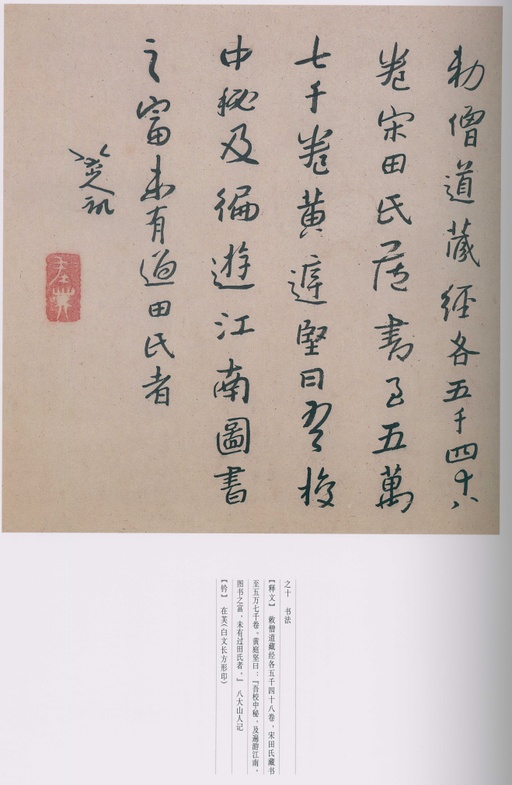 勅僧道藏經各五千四十八
卷宋田氏藏書至五萬
七千卷黄庭堅曰吾校
中秘及徧遊江南圖書
之富未有過田氏者
八大山人記
在芙
之十 书法
【释文】 敕僧道藏经各五千四十八卷，宋田氏藏书
至五万七千卷，黄庭坚曰：『吾校中秘，及遍游江南，
图书之富，未有过田氏者。』 八大山人记
【钤】 在芙(白文长方形印)